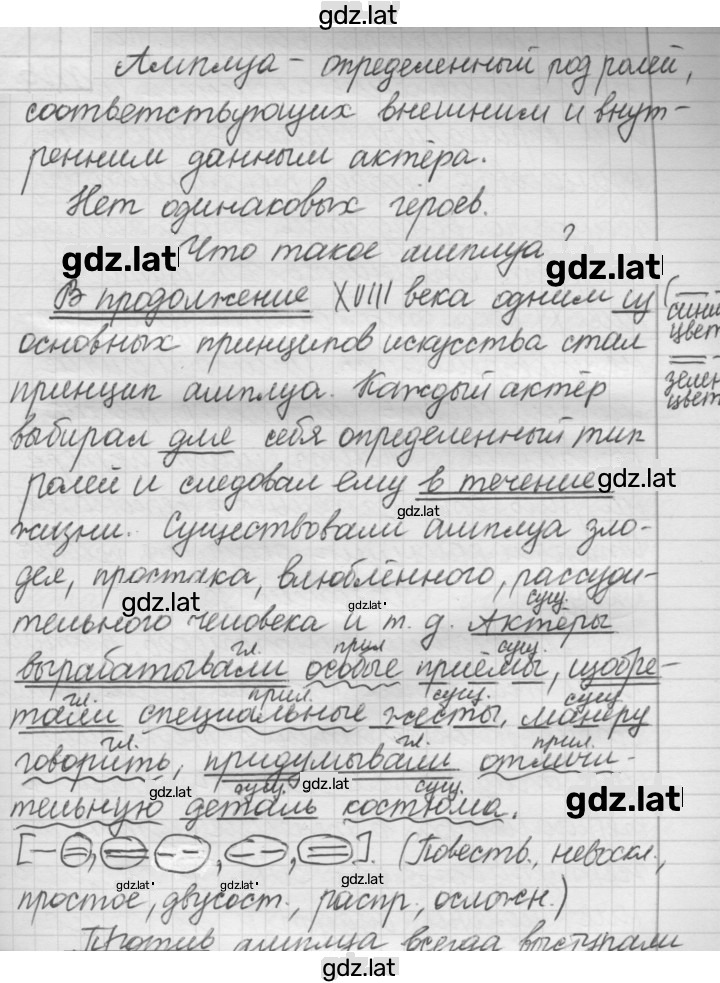 gdz.lat
Амплуа – определенный род ролей,
соответствующих внешним и внут-
ренним данным актёра.
Нет одинаковых героев.
gdz.lat Что такое амплуа? gdz.lat
В продолжение XVIII века одним из (
синий
цвет
основных принципов искусства стал
принцип амплуа. Каждый актёр
зелен
цвет
выбирал для себя определенный тип
ролей и следовал ему в течение gdz.lat
gdz.lat
жизни. Существовали амплуа зло-
дея, простака, влюблённого, рассуди-
gdz.lat gdz.lat сущ.
тельного человека и т. д. Актёры
гл. прил сущ.
вырабатывали особые приёмы, изобре-
гл. прил. сущ. сущ.
тали специальные жесты, манеру
гл. гл. прил.
говорить, придумывали отличи-
gdz.lat сущ. gdz.lat сущ. gdz.lat
тельную деталь костюма.
[– =, =, – –, – –, =]. (Повеств., невоскл.,
gdz.lat gdz.lat gdz.lat
простое, двусост., распр., осложн.)
Против амплуа всегда выступали
gdz.lat